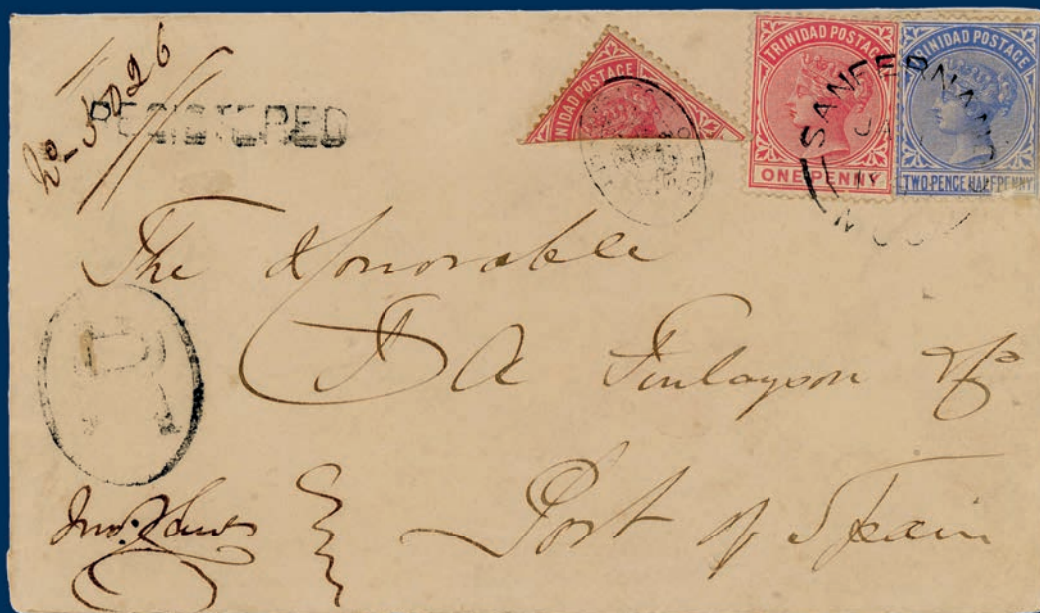 No 5026
REGISTERED
TRINIDAD POSTAGE
TRINIDAD POSTAGE
ONE PENNY
TRINIDAD POSTAGE
TWO PENCE HALFPENNY
SAN FERNANDO
The Honorable
D A Finlayson
Port of Spain
R